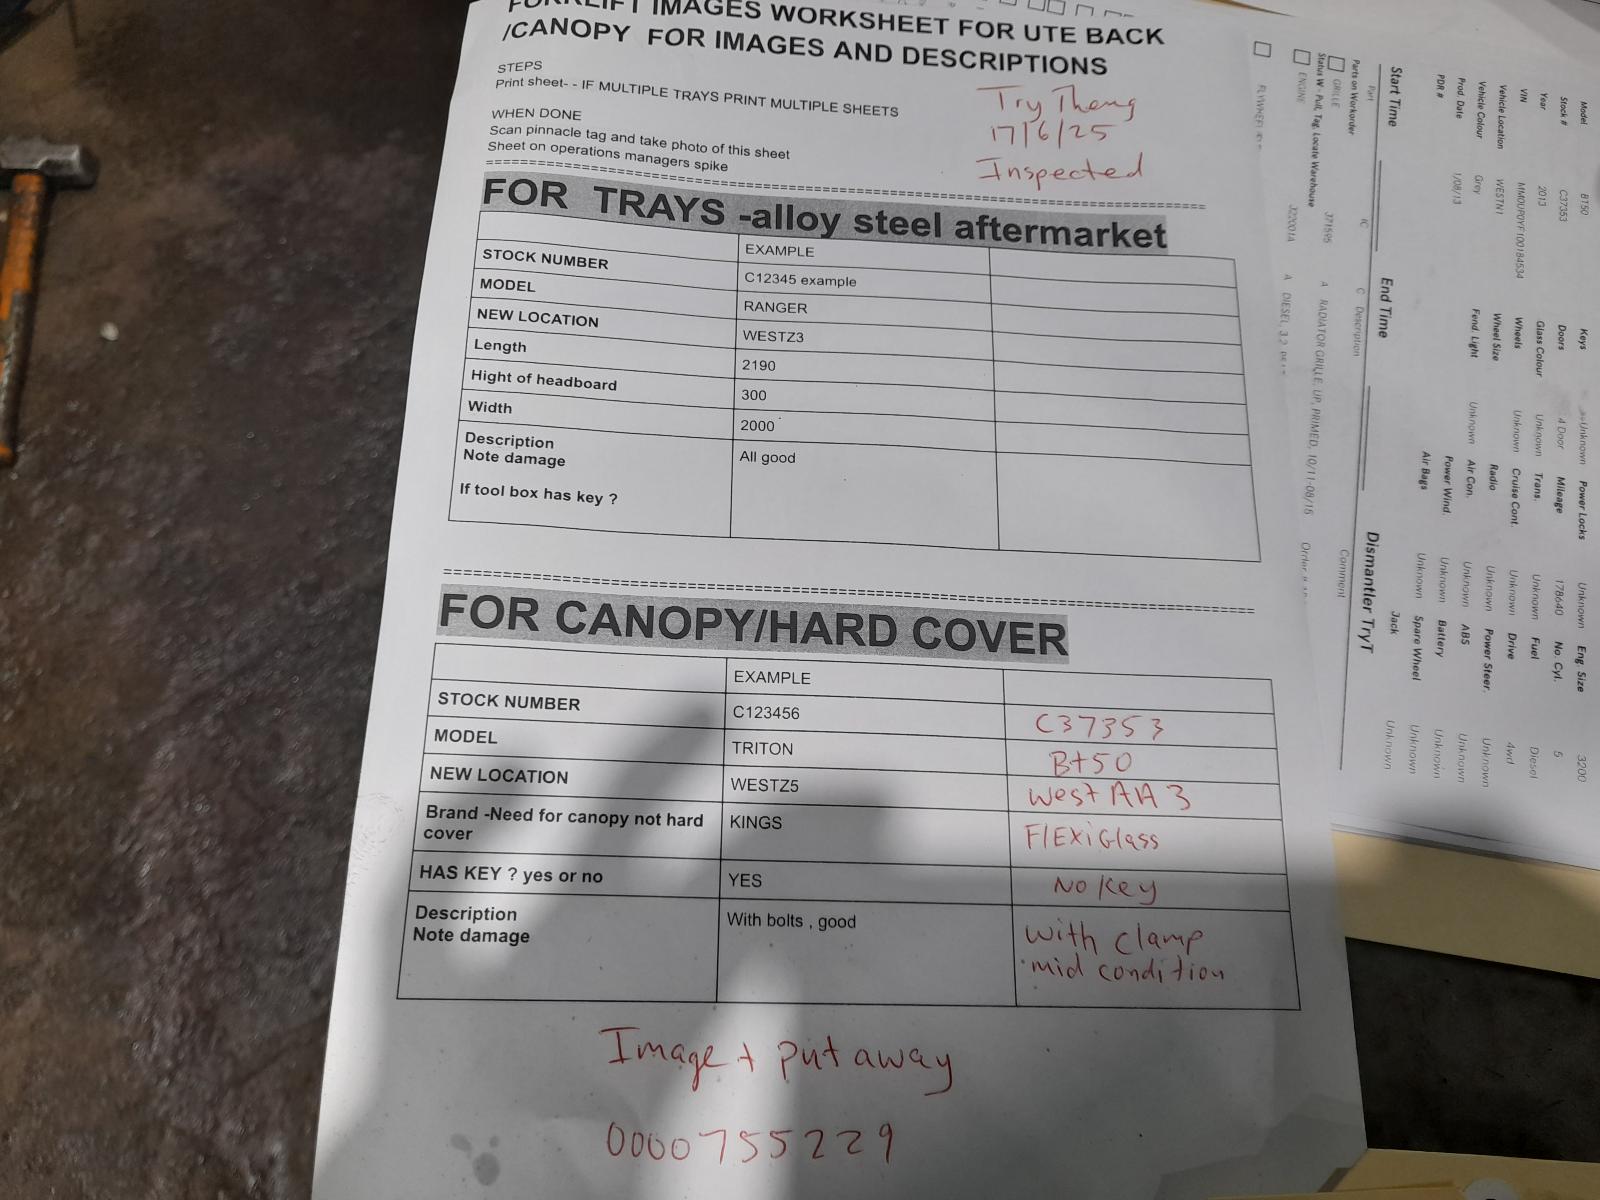 FORKLIFT IMAGES WORKSHEET FOR UTE BACK
/CANOPY FOR IMAGES AND DESCRIPTIONS
STEPS
Print sheet- - IF MULTIPLE TRAYS PRINT MULTIPLE SHEETS
WHEN DONE
Scan pinnacle tag and take photo of this sheet
Sheet on operations managers spike
Try Theng
17/6/25
Inspected
FOR TRAYS -alloy steel aftermarket
EXAMPLE
STOCK NUMBER C12345 example
MODEL RANGER
NEW LOCATION WESTZ3
Length 2190
Hight of headboard 300
Width 2000
Description All good
Note damage
If tool box has key ?
FOR CANOPY/HARD COVER
EXAMPLE
STOCK NUMBER C123456 C37353
MODEL TRITON Bt50
NEW LOCATION WESTZ5 west AA3
Brand -Need for canopy not hard KINGS FlExiGlass
cover
HAS KEY ? yes or no YES No Key
Description With bolts , good with clamp
Note damage mid condition
Image + put away
0000755229
Model BT50 Keys Unknown Power Locks Unknown Eng Size 3200
Stock # C37353 Doors 4 Door Mileage 178640 No. Cyl. 5
Year 2013 Glass Colour Unknown Trans. Unknown Fuel Diesel
VIN MM0UP0YF100184534 Wheels Unknown Cruise Cont. Unknown Drive 4wd
Vehicle Location WESTN1 Wheel Size Radio Unknown Power Steer. Unknown
Vehicle Colour Grey Fend. Light Unknown Air Con. Unknown ABS Unknown
Prod. Date 1/08/13 Power Wind. Unknown Battery Unknown
PDR # Air Bags Unknown Spare Wheel Unknown
Jack Unknown
Start Time End Time Dismantler TryT
Part IC C Description Comment
Parts on Workorder
GRILLE 371595 A RADIATOR GRILLE, UP, PRIMED, 10/11-08/15
Status W - Pull, Tag, Locate Warehouse
ENGINE 322001A A DIESEL, 3.2